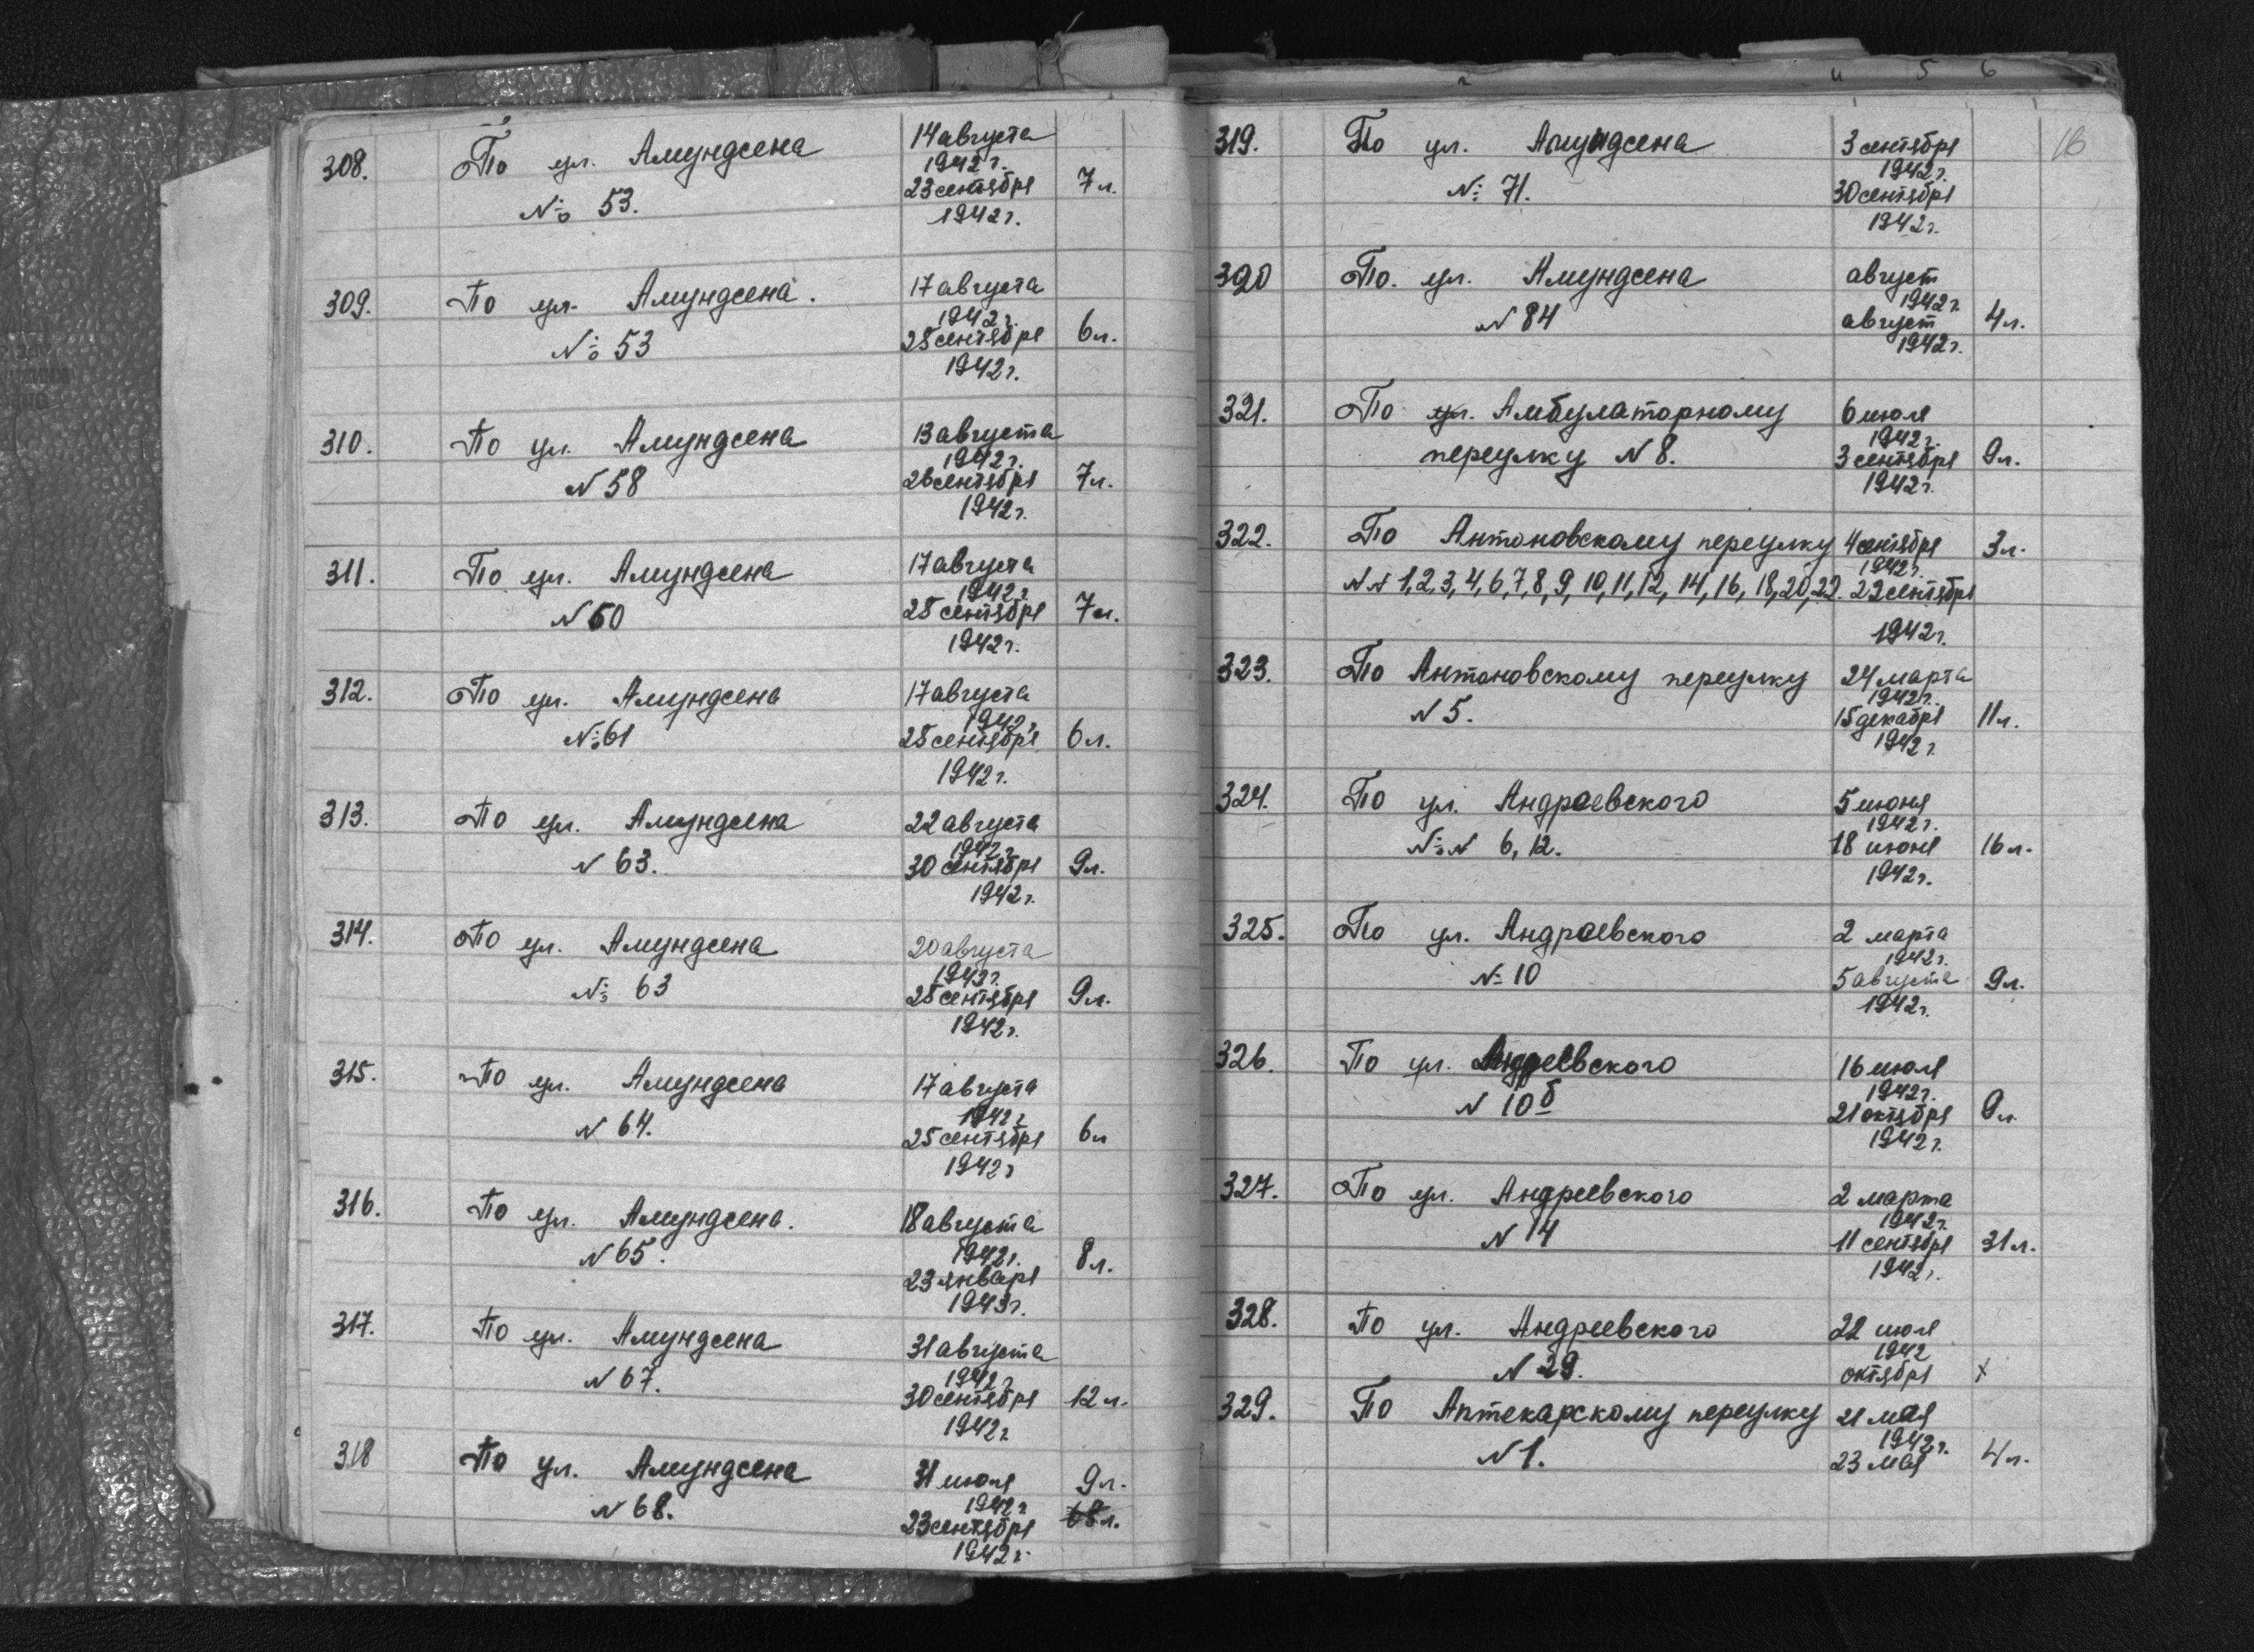 308. По ул. Амундсена 14 августа
1942 г.
№ 53. 23 сентября 7 л.
1942 г.
309. По ул. Амундсена. 17 августа
1942 г.
№ 53 28 сентября 6 л.
1942 г.
310. По ул. Амундсена 13 августа
1942 г.
N 58 26 сентября 7 л.
1942 г.
311. По ул. Амундсена 17 августа
1942 г.
N 60 28 сентября 7 л.
1942 г.
312. По ул. Амундсена 17 августа
1942 г.
№ 61 28 сентября 6 л.
1942 г.
313. По ул. Амундсена 22 августа
1942 г.
N 63. 30 сентября 9 л.
1942 г.
314. По ул. Амундсена 20 августа
1942 г.
№ 63 28 сентября 9 л.
1942 г.
315. По ул. Амундсена 17 августа
1942 г.
N 64. 25 сентября 6 л
1942 г
316. По ул. Амундсена. 18 августа
1942 г.
N 65. 23 января 8 л.
1943 г.
317. По ул. Амундсена 31 августа
1942 г.
N 67. 30 сентября 12 л.
1942 г.
318 По ул. Амундсена 31 июля 9 л.
1942 г.
N 68. 23 сентября 68 л.
1942 г.
и 5 6
16
319. По ул. Амундсена 3 сентября
1942 г.
№ 71. 30 сентября
1942 г.
320 По. ул. Амундсена август
1942 г.
N 84 август 4 л.
1942 г.
321. По ул. Амбулаторному 6 июля
1942 г.
переулку N 8. 3 сентября 9 л.
1942 г.
322. По Антоновскому переулку 4 сентября 3 л.
1942 г.
N N 1, 2, 3, 4, 6, 7, 8, 9, 10, 11, 12, 14, 16, 18, 20, 22. 22 сентября
1942 г.
323. По Антоновскому переулку 24 марта
1942 г.
N 5. 15 декабря 11 л.
1942 г.
324. По ул. Андреевского 5 июня
1942 г.
№ N 6, 12. 18 июня 16 л.
1942 г.
325. По ул. Андреевского 2 марта
1942 г.
№ 10 5 августа 9 л.
1942 г.
326. По ул. Андреевского 16 июля
1942 г.
N 10 б 21 октября 9 л.
1942 г.
327. По ул. Андреевского 2 марта
1942 г.
N 14 11 сентября 31 л.
1942 г.
328. По ул. Андреевского 22 июля
1942
N 29. октября х
329. По Аптекарскому переулку 21 мая
1942 г.
N 1. 23 мая 4 л.